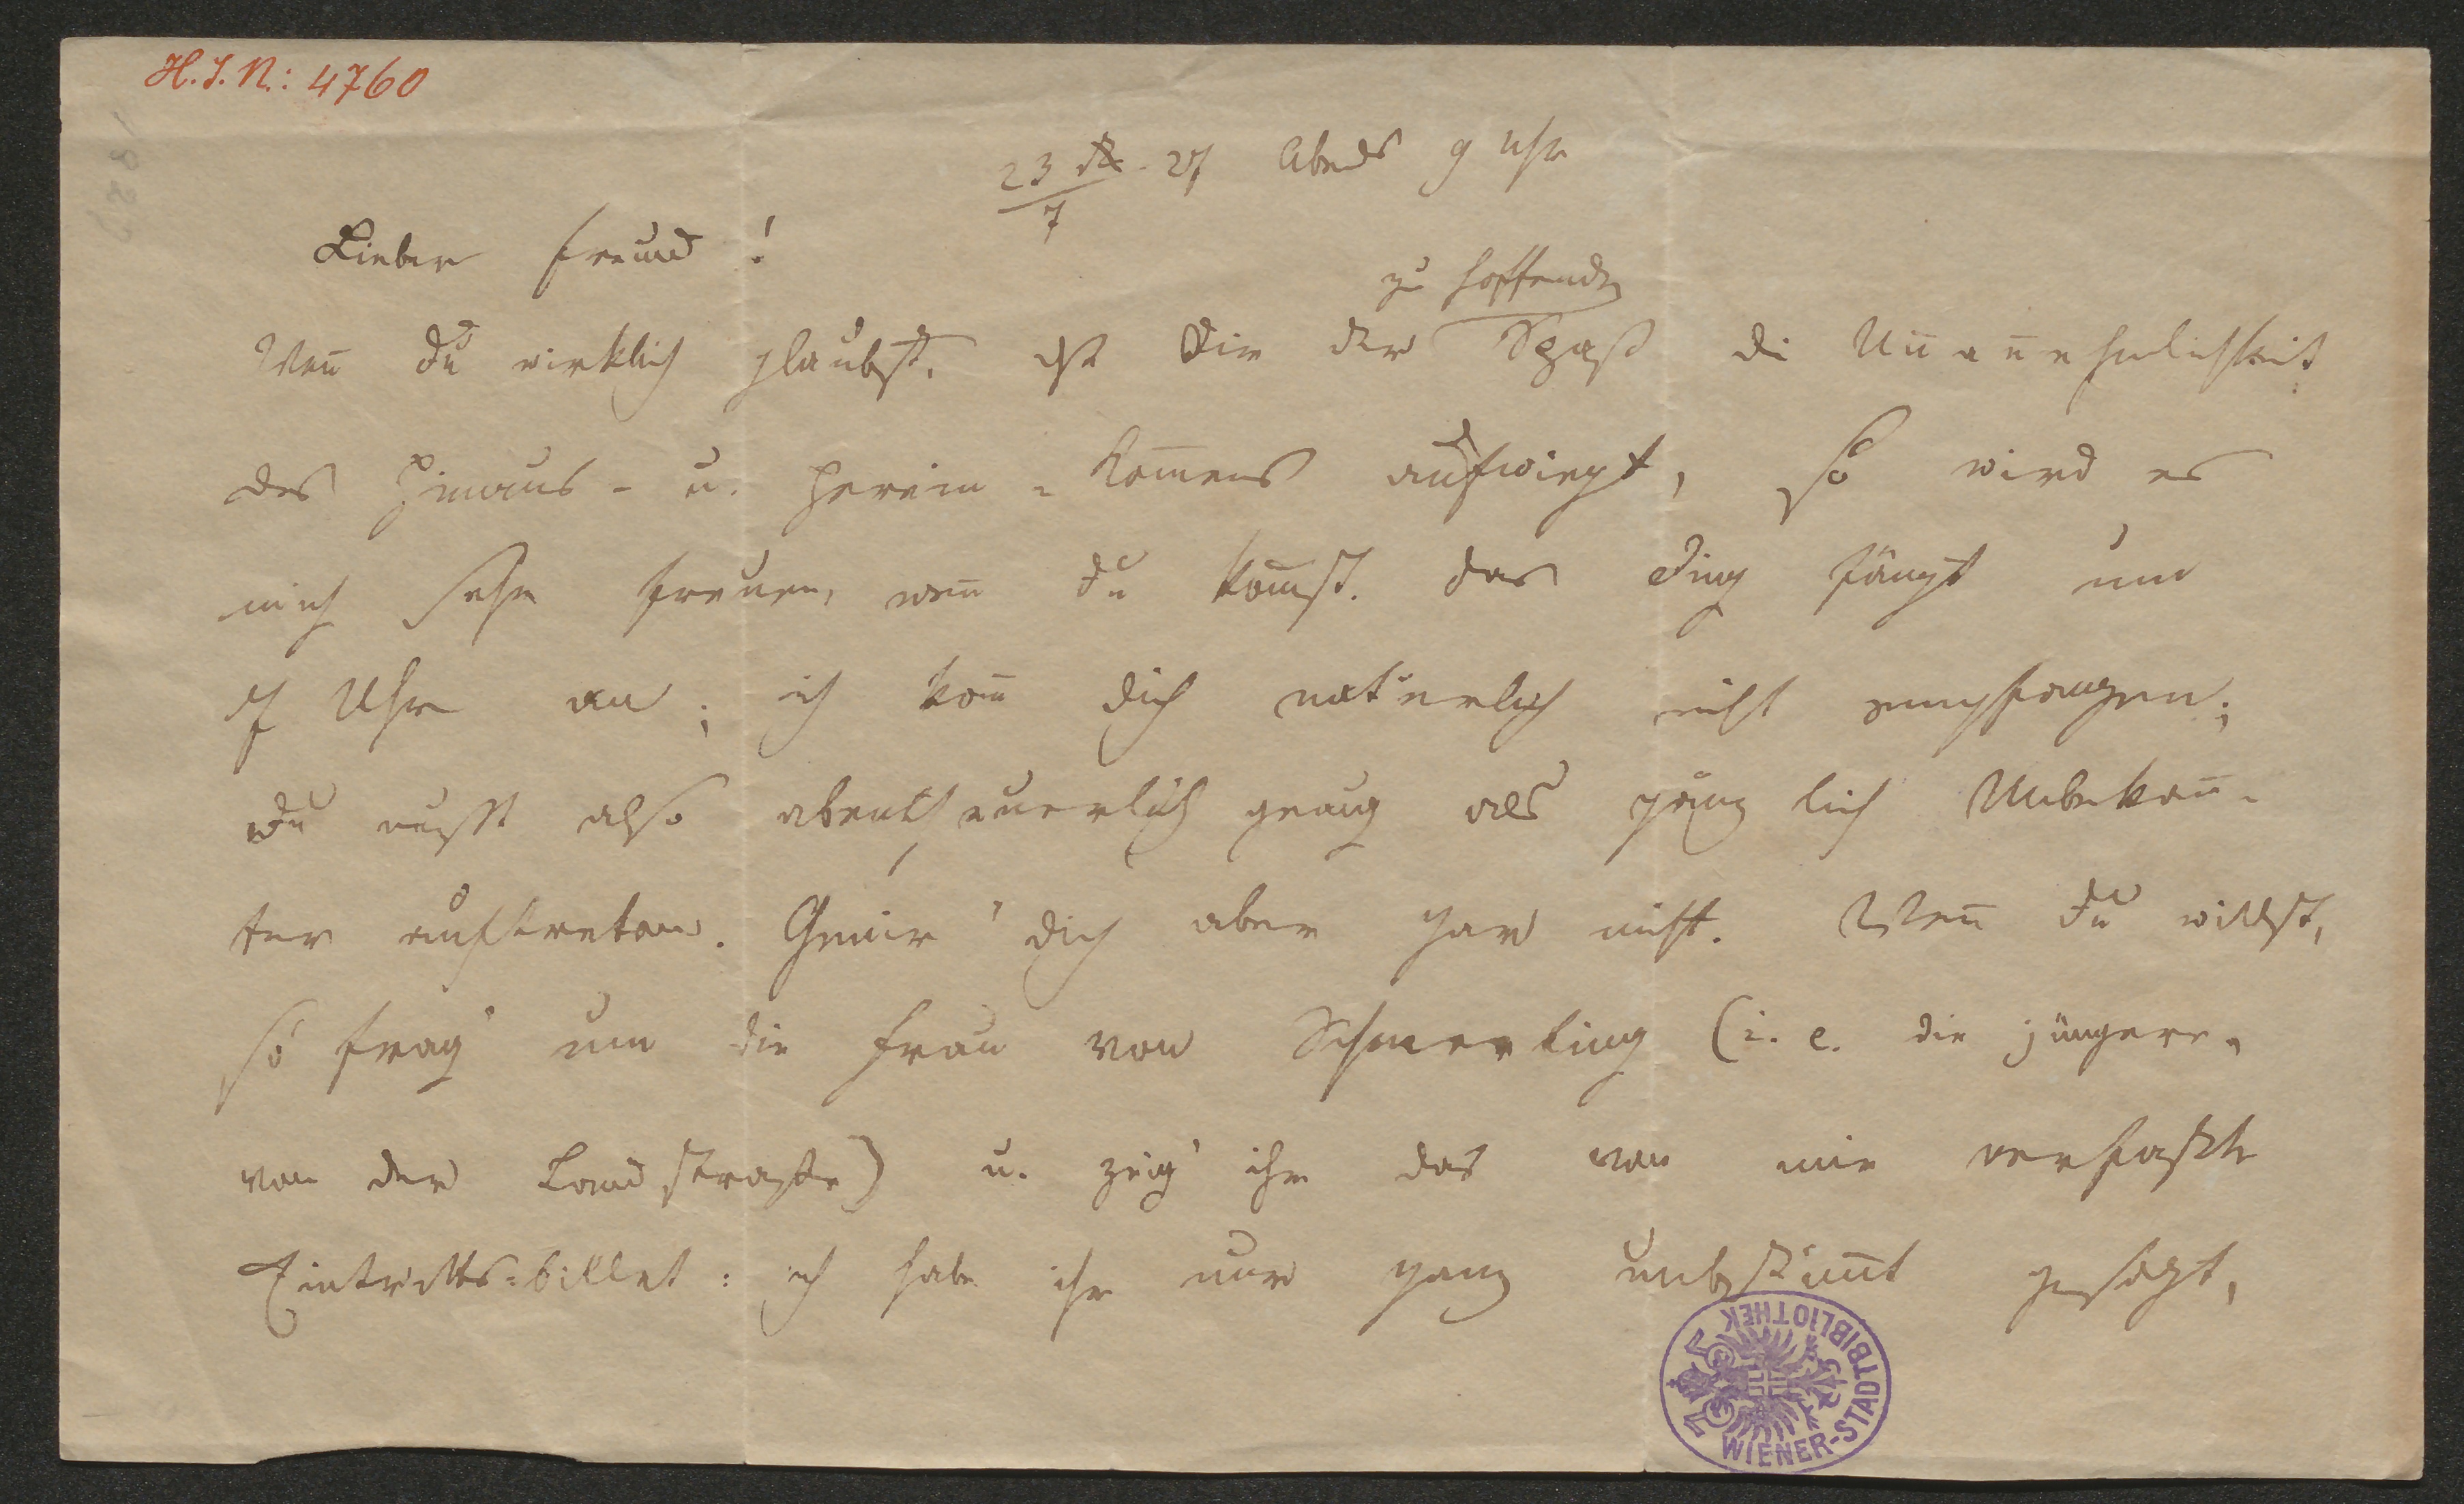 H. I. N.: 4760
23/7 27 Abends 9 Uhr
Lieber Freund!
zu hoffende
Weñ du wirklich glaubst, daß dir der Spaß die Uñañehmlichkeit
des Hinaus- u. Herein-Kom̄ens aufwiegt, so wird es
mich sehr freuen, weñ du kom̄st. Das Ding fängt um
7 Uhr an; ich kañ dich natürlich nicht empfangen;
du mußt also abentheuerlich genug als gänzlich Unbekañ-
ter auftreten. Genir' dich aber gar nicht. Weñ du willst,
so frag' um die Frau von Schmerling (i. e. die jüngere,
von der Landstraße) u. zeig' ihr das von mir verfaßte
Eintritts-billet: ich habe ihr nur ganz unbestim̄t gesagt,
WIENER-STADTBIBLIOTHEK